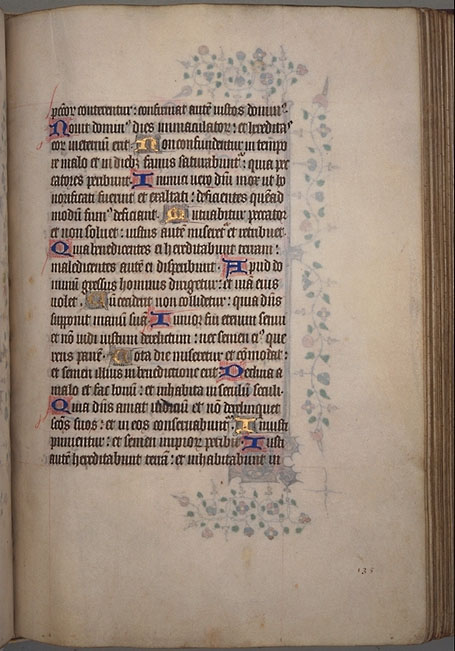 pctor̄ conterentur: confirmat autē iustos domin⁹.
Nouit domin⁹ dies immaculator̄: et heredita⁹
eor̄ in eternū erit. Non confundentur in tempo
re malo et in dieb; famis saturabunt᷑: quia pec
catores peribunt. Inimici uero dn̄i mox ut ho
norificati fuerint et exaltati: deficientes quēad
modū fum⁹ deficient. Mutuabitur peccator
et non soluet: iustus autē miseret᷑ et retribuet.
Quia benedicentes ei hereditabunt terram:
maledicentes autē ei disperibunt. Apud do
minū gressus hominis dirigetur: et uia eius
uolet. Cū ceciderit non collidetur: quia dn̄s
supponit manū suā. Iunior fui etenim senui
et nō uidi iustum derelictum: nec semen ei⁹ que
rens panē. Tota die miseretur et cōmodat:
et semen illius in benedictione erit. Declina a
malo et fac bonū: et inhabita in seculū seculi.
Quia dn̄s amat iudiciū et nō derelinquet
scōs suos: et in eos conseruabunt᷑. Iniusti
punientur: et semen impior̄ peribit. Iusti
autē hereditabunt terrā: et inhabitabunt in